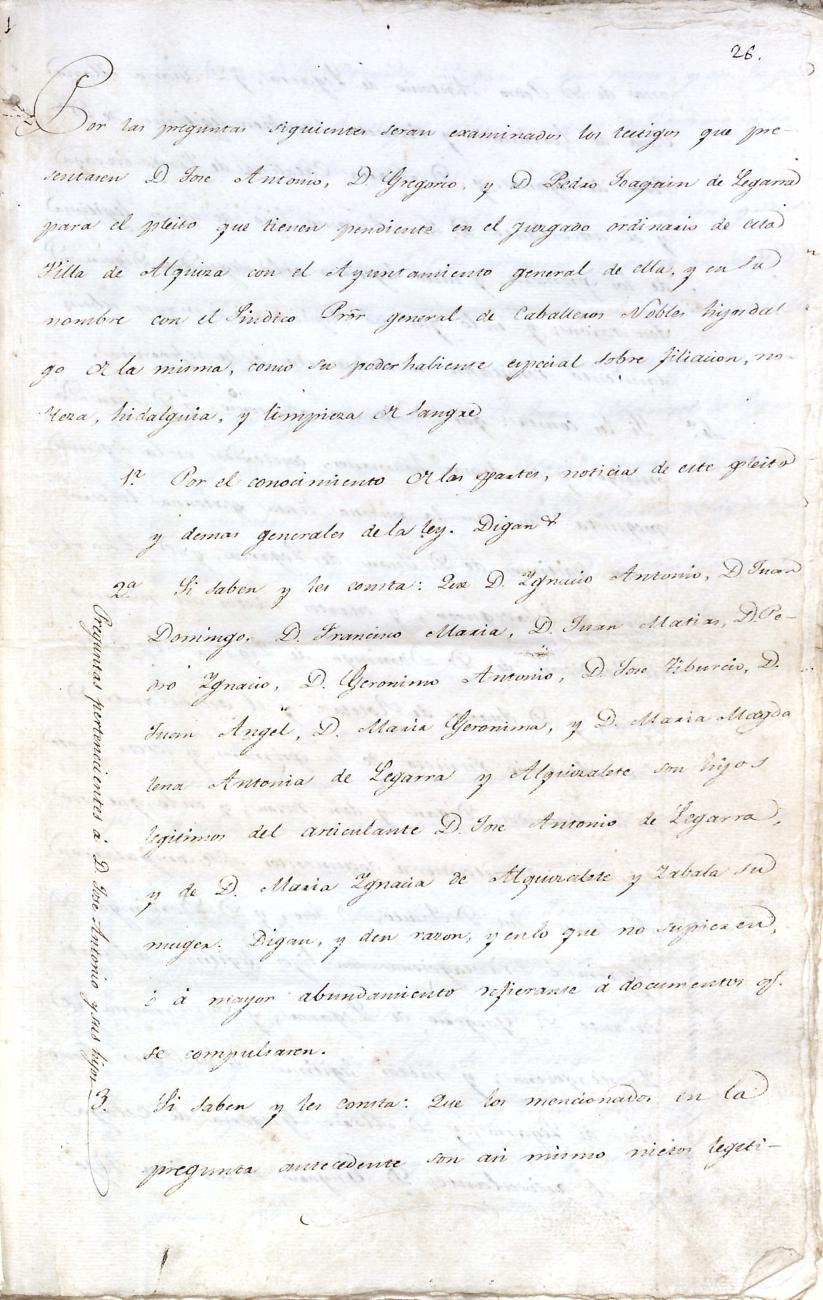 26.
Por las preguntas siguientes seran examinados los testigos que pre-
sentaren D. Jose Antonio, D. Gregorio, y D. Pedro Joaquin de Legarra
para el pleito que tienen pendiente en el juzgado ordinario de esta
Villa de Alquiza con el Ayuntamiento general de ella, y en su
nombre con el Sindico Prõr general de Caballeros Nobles hijosdal
go de la misma, como su poderhabiente especial sobre filiacion, no-
bleza, hidalguia, y limpieza de sangre
1.ª Por el conocimiento de las partes, noticias de este pleito
y demas generales de la ley. Digan &
2.ª Si saben y les consta: Que D. Ygnacio Antonio, D. Juan
Domingo, D. Francisco Maria, D. Juan Matias, D. Pe-
dro Ygnacio, D. Geronimo Antonio, D. Jose Tiburcio, D.
Juan Angel, D. Maria Geronima, y D. Maria Magda
lena Antonia de Legarra y Alquizalete son hijos
legitimos del articulante D. Jose Antonio de Legarra,
y de D. Maria Ygnacia de Alquizalete y Zabala su
muger. Digan, y den razon, y en lo que no supieren,
ò à mayor abundamiento refieranse á documentos q.
se compulsaren.
3. Si saben y les consta: Que los mencionados en la
pregunta antecedente son asi mismo nietos legiti-
Preguntas pertencientes á D. Jose Antonio y sus hijos